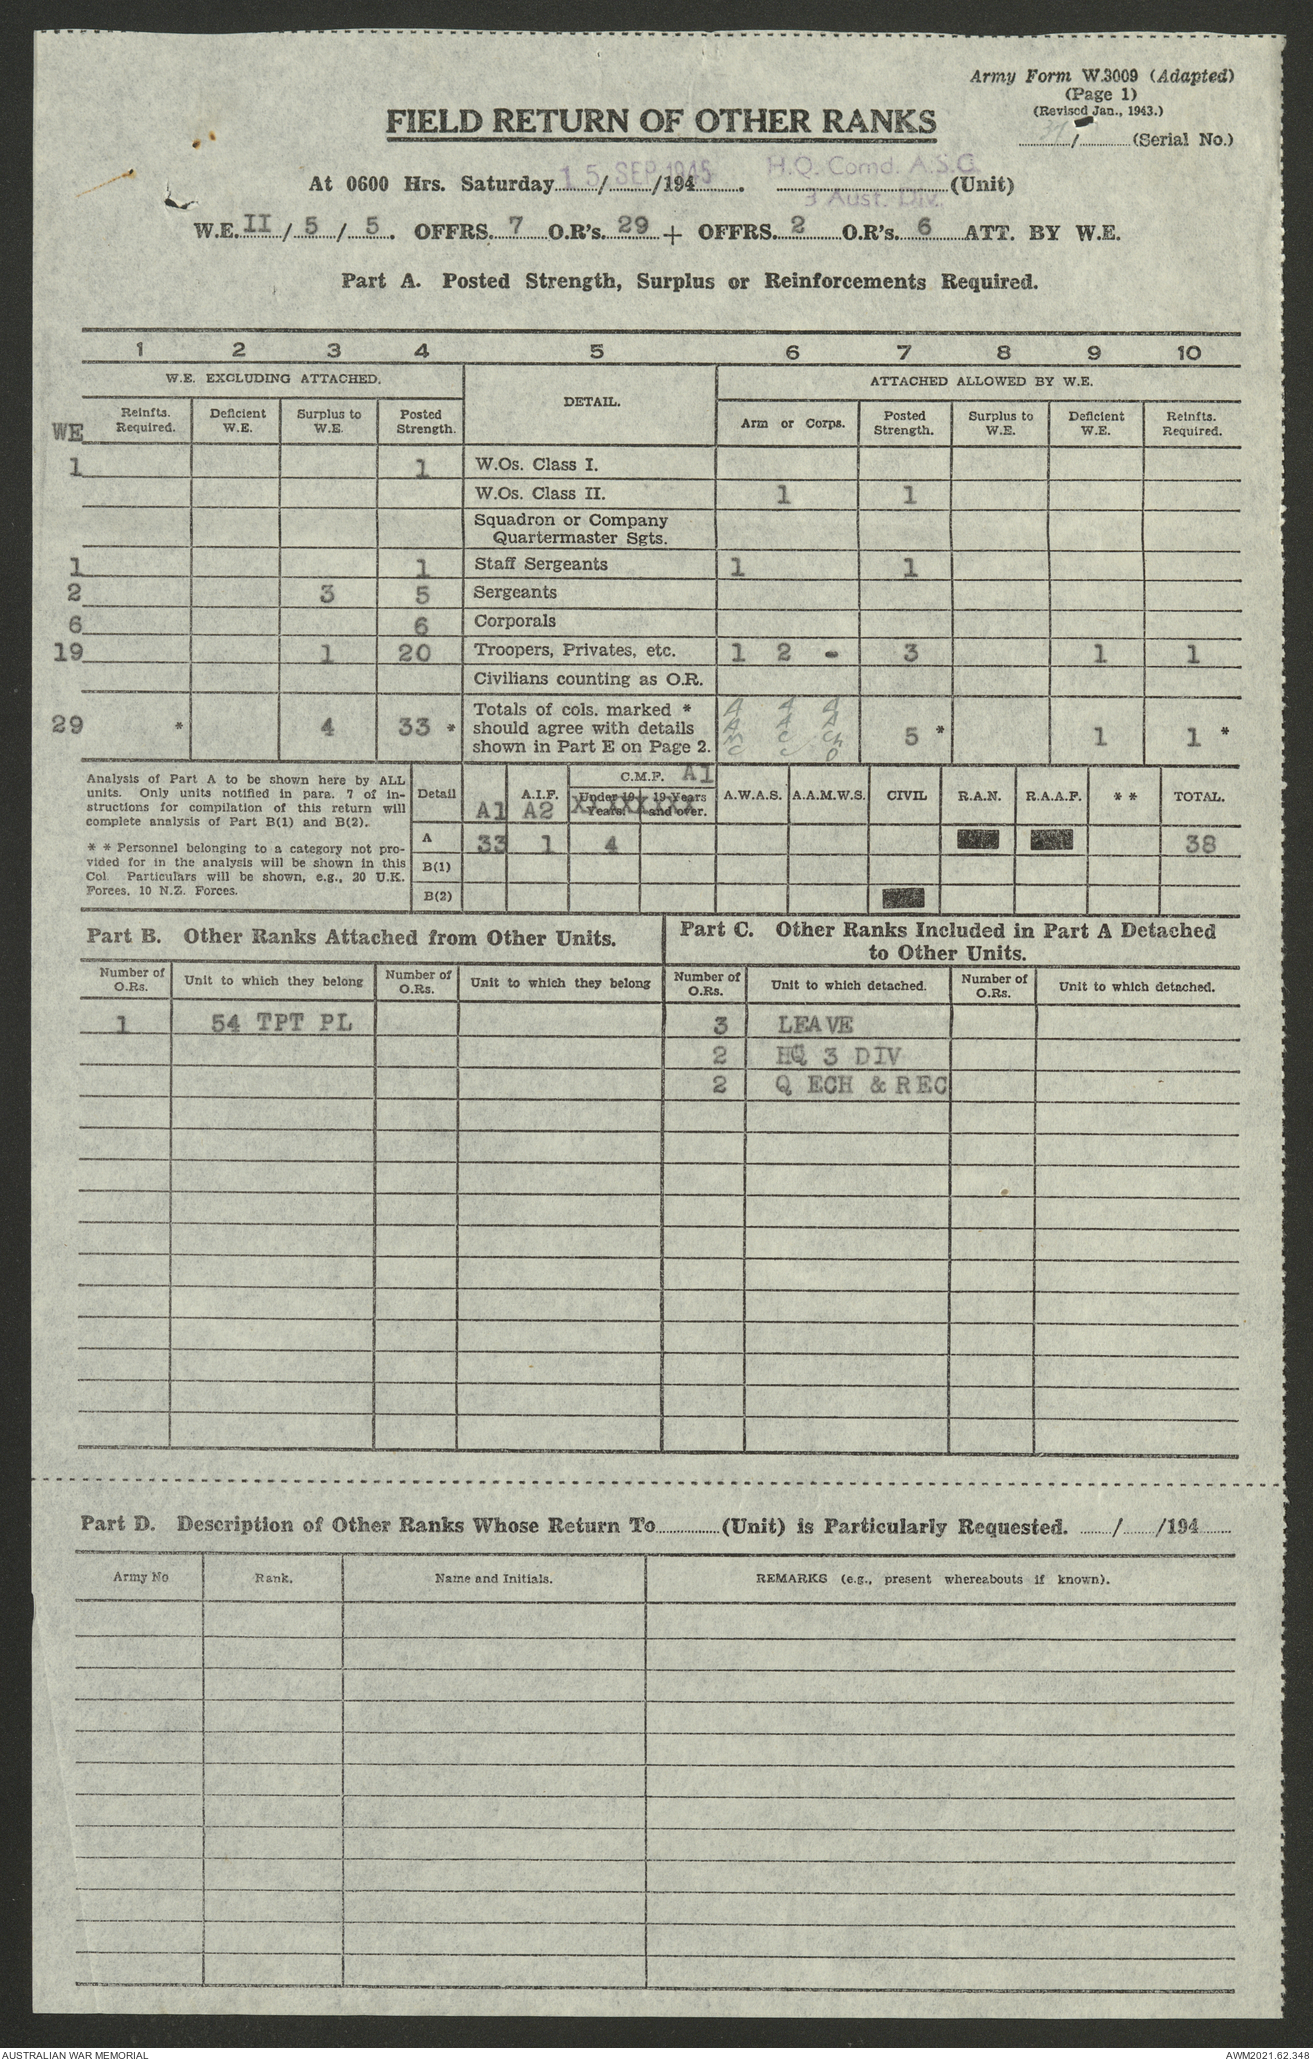 Army Form W.3009 (Adapted)
(Page 1)
(Revised Jan., 1943.)
FIELD RETURN OF OTHER RANKS
31/ (Serial No.)
At 0600 Hrs. Saturday 15 SEP 1945 /194 . H.Q. Comd. A.S.C. (Unit)
3 Aust. Div.
W.E. II / 5 / 5 . OFFRS. 7 O.R's. 29 + OFFRS. 2 O.R's. 6 ATT. BY W.E.
Part A. Posted Strength, Surplus or Reinforcements Required.
1 2 3 4 5 6 7 8 9 10
W.E. EXCLUDING ATTACHED. DETAIL. ATTACHED ALLOWED BY W.E.
WE Reinfts. Required. Deficient W.E. Surplus to W.E. Posted Strength. Arm or Corps. Posted Strength. Surplus to W.E. Deficient W.E. Reinfts. Required.
1 1 W.Os. Class I.
W.Os. Class II. 1 1
Squadron or Company
Quartermaster Sgts.
1 1 Staff Sergeants 1 1
2 3 5 Sergeants
6 6 Corporals
19 1 20 Troopers, Privates, etc. 1 2 - 3 1 1
Civilians counting as O.R.
29 * 4 33 * Totals of cols. marked * should agree with details shown in Part E on Page 2. A A M C A A C C A A Ch O 5 * 1 1 *
Analysis of Part A to be shown here by ALL
units. Only units notified in para. 7 of in-
structions for compilation of this return will
complete analysis of Part B(1) and B(2).
* * Personnel belonging to a category not pro-
vided for in the analysis will be shown in this
Col. Particulars will be shown, e.g., 20 U.K.
Forces, 10 N.Z. Forces.
Detail A1 A.I.F. A2 C.M.F. A1 Under 19 Years. 19 Years and over. A.W.A.S. A.A.M.W.S. CIVIL R.A.N. R.A.A.F. * * TOTAL.
A 33 1 4 38
B(1)
B(2)
Part B. Other Ranks Attached from Other Units.
Part C. Other Ranks Included in Part A Detached
to Other Units.
Number of O.Rs. Unit to which they belong Number of O.Rs. Unit to which they belong Number of O.Rs. Unit to which detached. Number of O.Rs. Unit to which detached.
1 54 TPT PL 3 LEAVE
2 HQ 3 DIV
2 Q ECH & REC
Part D. Description of Other Ranks Whose Return To (Unit) is Particularly Requested. / /194
Army No Rank. Name and Initials. REMARKS (e.g., present whereabouts if known).
AUSTRALIAN WAR MEMORIAL AWM2021.62.348